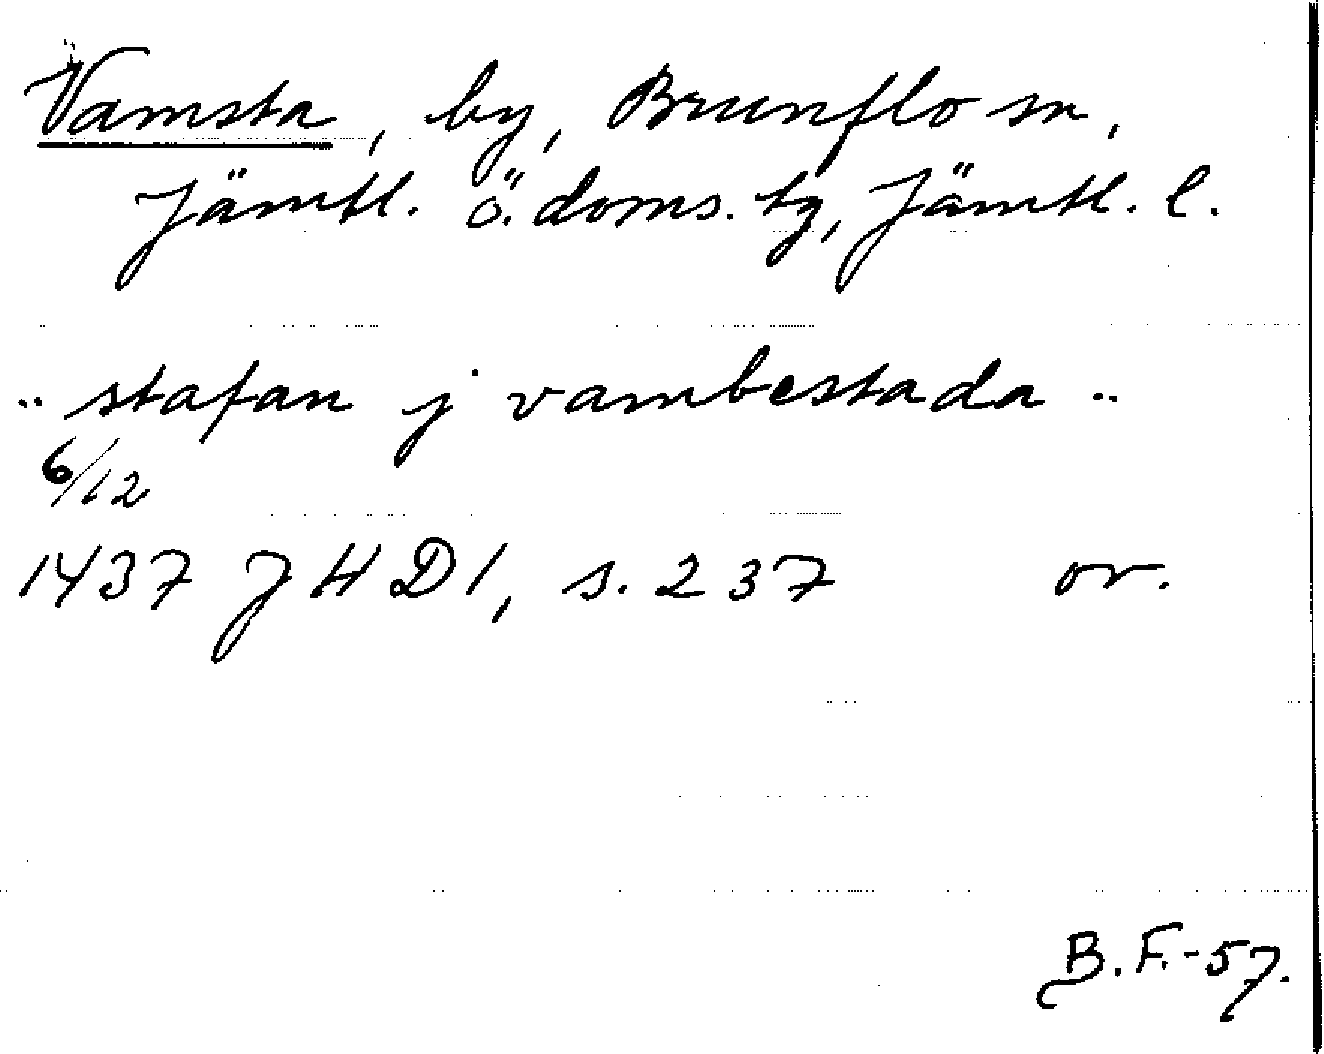 Vamsta, by, Brunflo sn,
Jämtl. ö. doms. tg, Jämtl. l.
.. stafan j vambestada ..
6/12
1437 JHD1, s. 237 or.
B.F.-57.